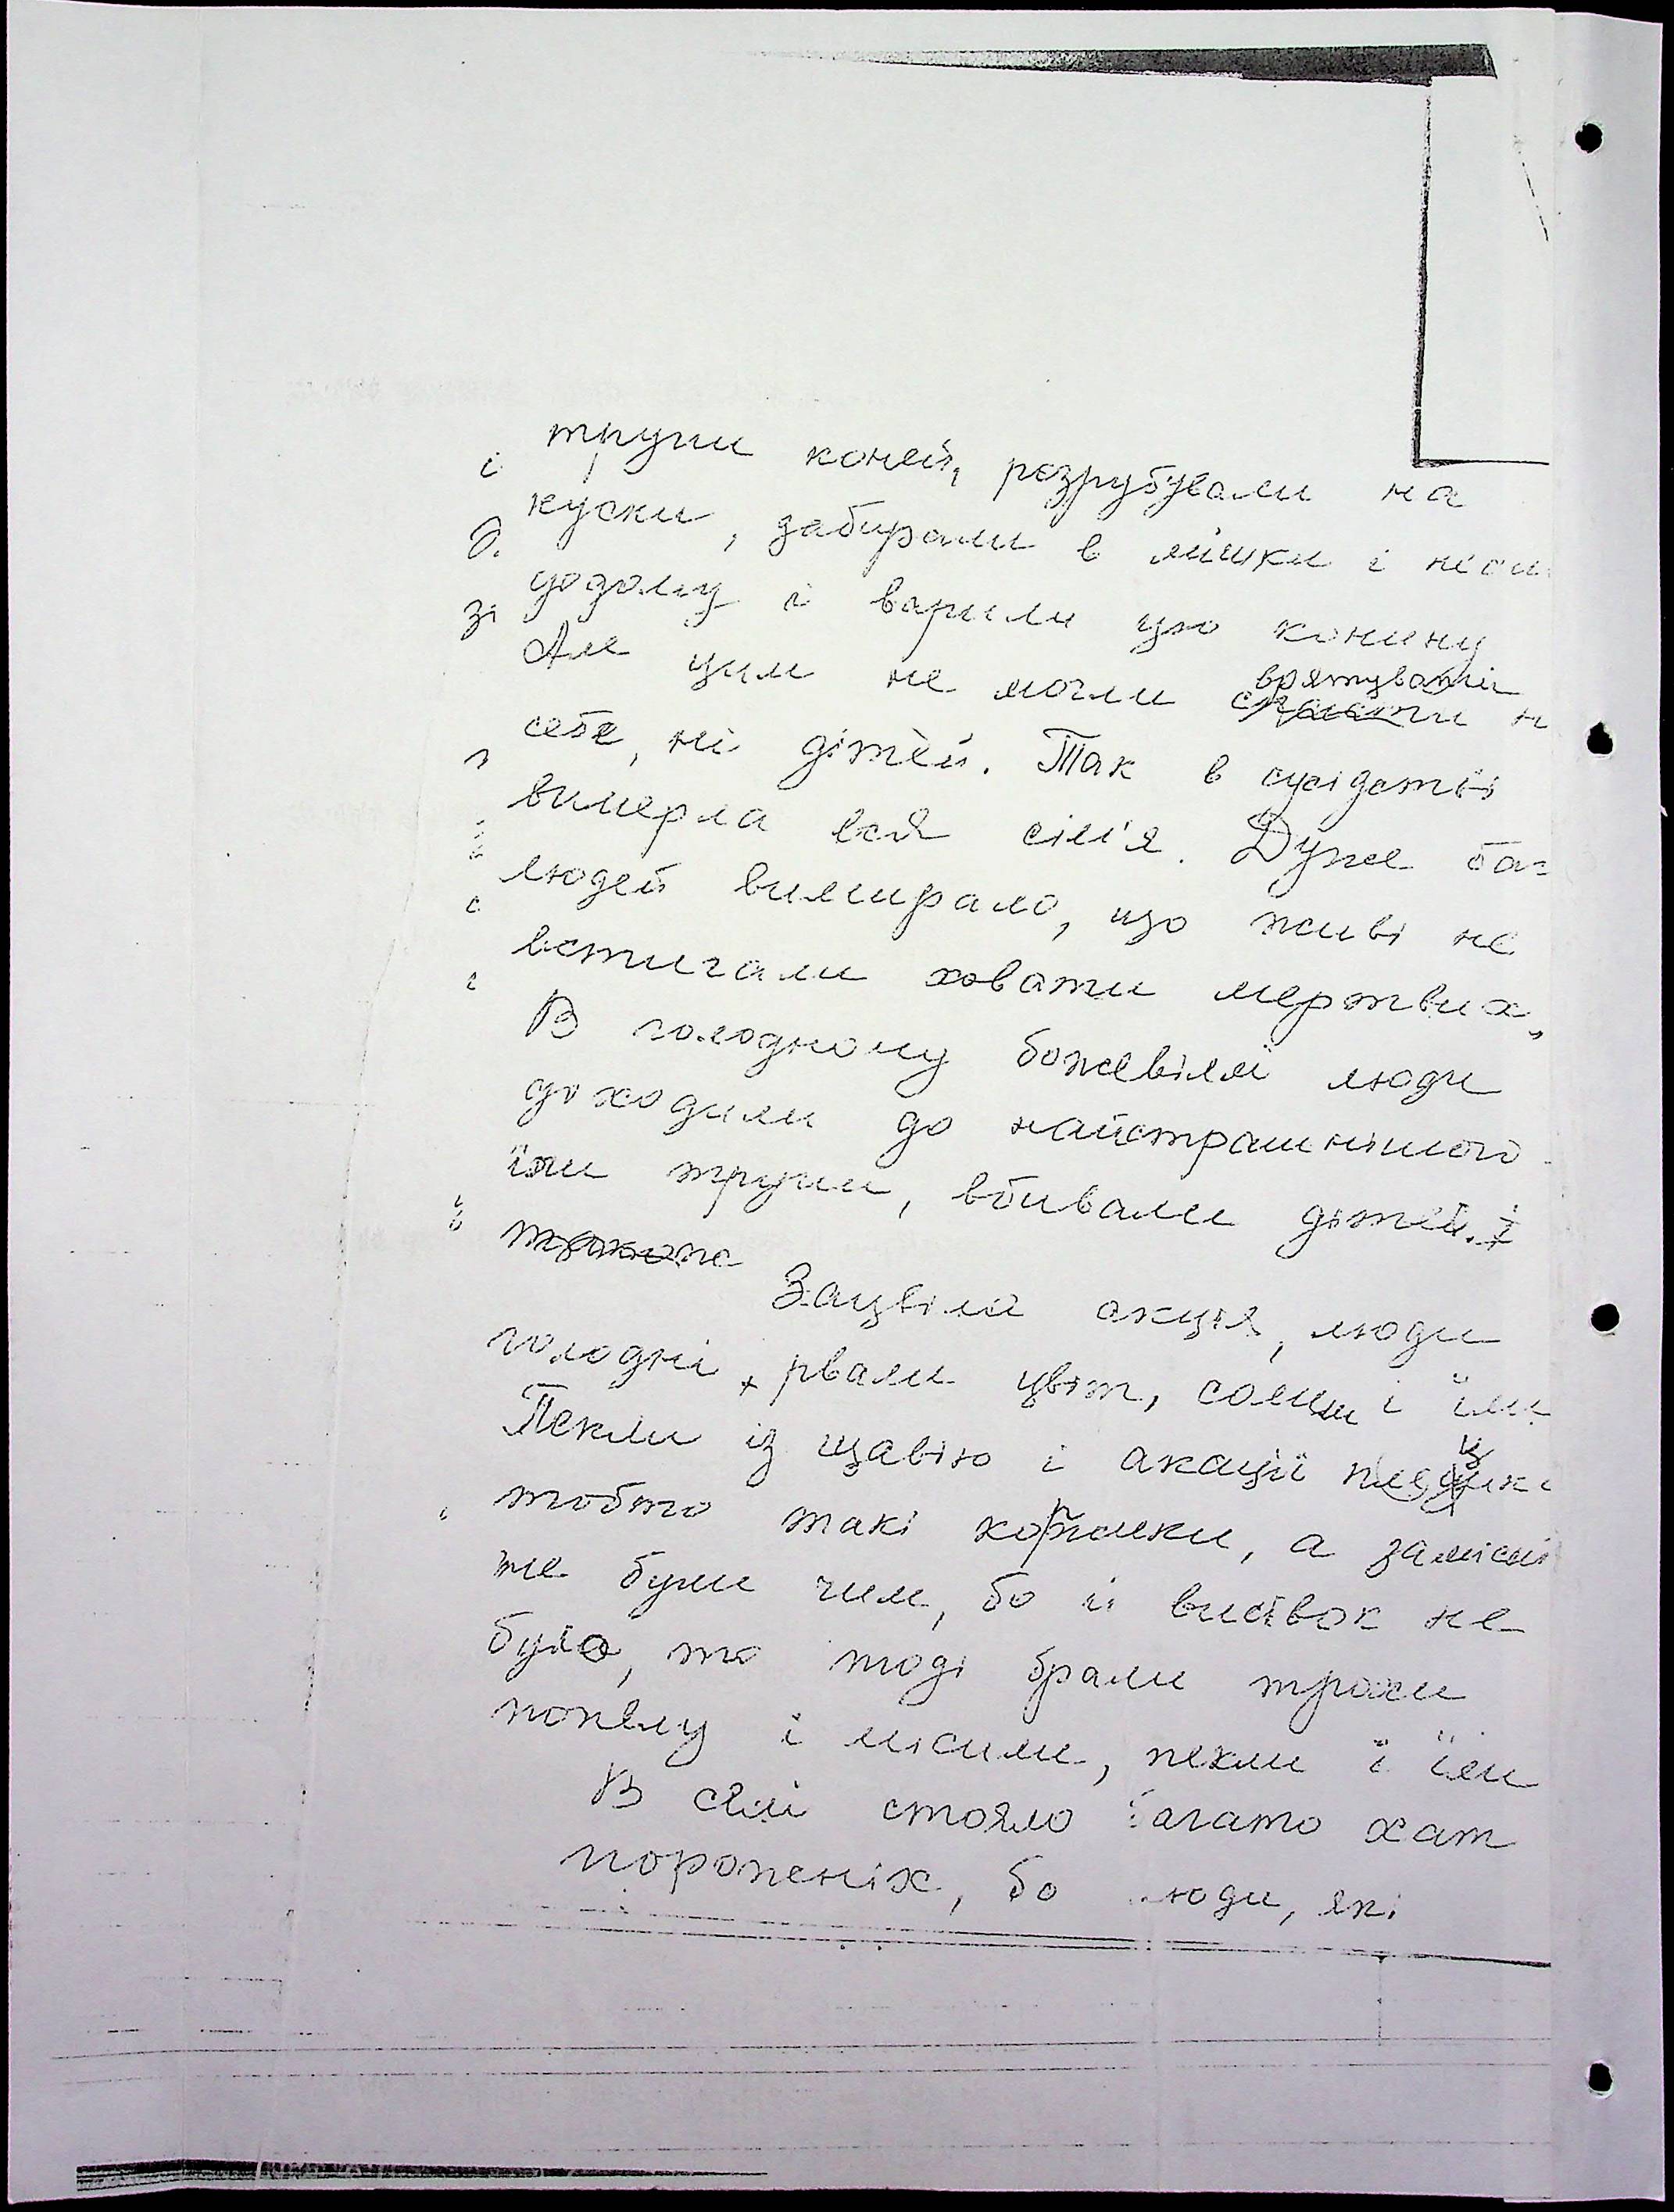 трупи коней, розрубували на
куски, забирали в мішки і несли
додому і варили цю конину
Але цим не могли врятувати н
себе, ні дітей. Так в сусідстві
вимерла вся сім'я. Дуже баг
людей вимирало, що живі не
встигали ховати мертвих,
В голодному божевіллі люди
доходили до найстрашнішого
їли трупи, вбивали дітей.
Зацвіла акція, люди
голодні рвали цвіт, солили і їли
Пекли із щавію і акації
тобто такі коржики, а замісит
не були чим, бо й висівок не
було, то тоді брали трохи
попелу і місили, пекли і їли
В селі стояло багато хат
порожніх, бо люди, які